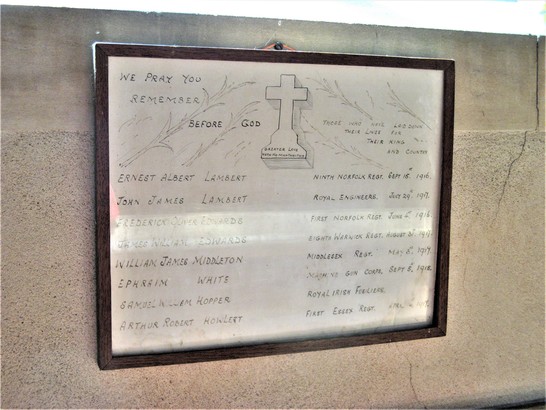 WE PRAY YOU
REMEMBER
BEFORE GOD
THOSE WHO HAVE LAID DOWN
THEIR LIVES FOR
THEIR KING
AND COUNTRY
GREATER LOVE
HATH NO MAN THAN THIS
ERNEST ALBERT LAMBERT NINTH NORFOLK REGT. SEPT 15th 1916.
JOHN JAMES LAMBERT ROYAL ENGINEERS. JULY 29th 1917.
FREDERICK OLIVER EDWARDS FIRST NORFOLK REGT. JUNE 6th 1918.
JAMES WILLIAM EDWARDS EIGHTH WARWICK REGT. AUGUST 1917
WILLIAM JAMES MIDDLETON MIDDLESEX REGT. MAY 8th 1917.
EPHRAIM WHITE MACHINE GUN CORPS. SEPT 8th 1918.
SAMUEL WILLIAM HOPPER ROYAL IRISH FUSILIERS.
ARTHUR ROBERT HOWLETT FIRST ESSEX REGT.